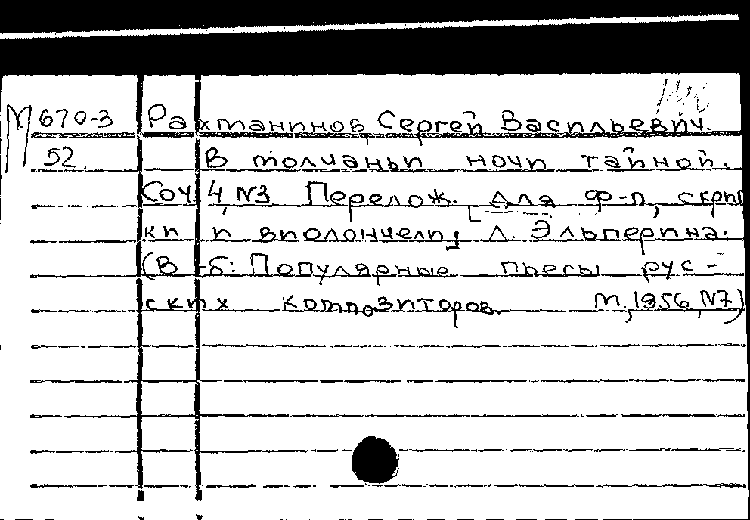 М 670-3 Рахманинов Сергей Васильевич.
52 В молчаньи ночи тайной.
Соч. 4, №3 Перелож. для ф-п, скрип
ки и виолончели; Л. Эльперина.
(В сб: Популярные пьесы рус-
ских композиторов. М, 1956, №7)